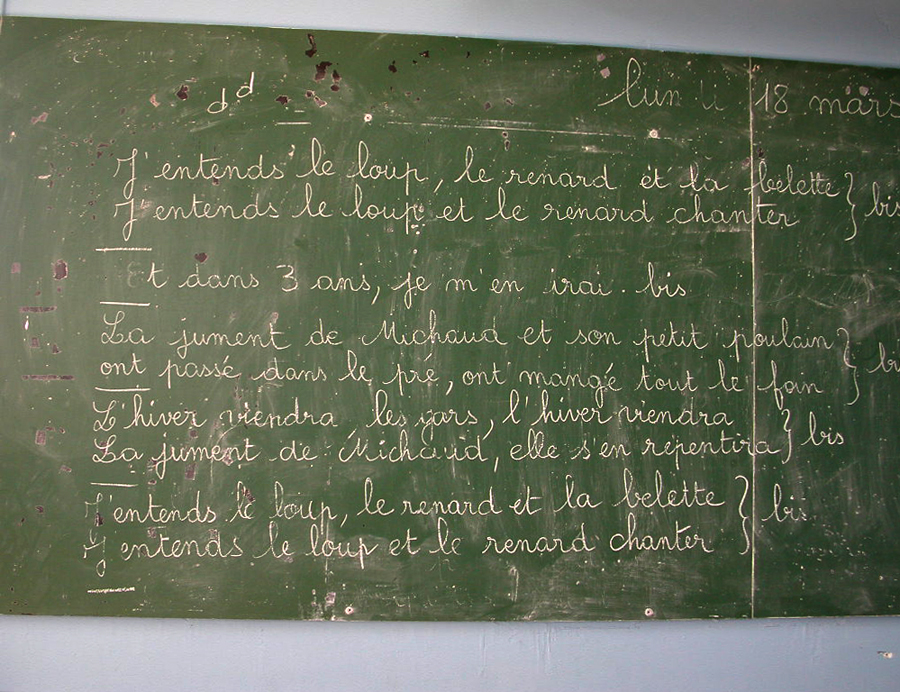 d d
lundi 18 mars
J'entends le loup, le renard et la belette } bis
J'entends le loup et le renard chanter
Et dans 3 ans, je m'en irai. bis
La jument de Michaud et son petit poulain } bi
ont passé dans le pré, ont mangé tout le foin
L'hiver viendra, les gars, l'hiver viendra } bis
La jument de Michaud, elle s'en repentira
J'entends le loup, le renard et la belette } bis
J'entends le loup et le renard chanter